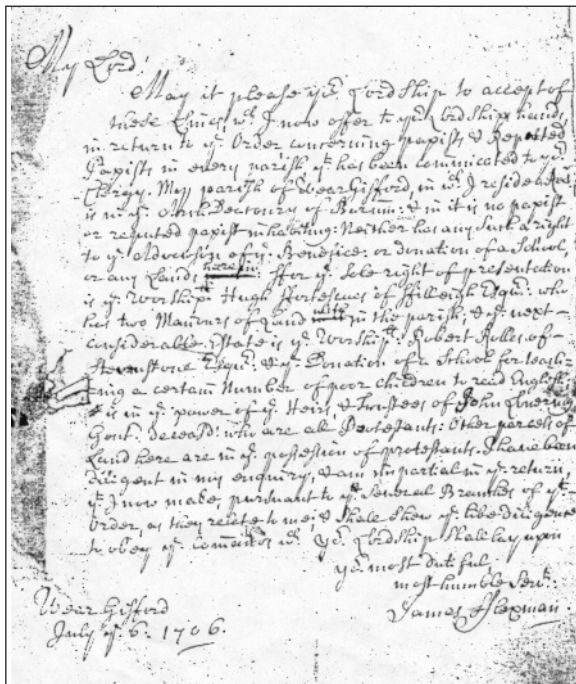 My Lord!
May it please yr Lordship to accept of
these Lines, wch I now offer to yr Lordships hand,
in return to ye Order concerning papists & Reputed
Papists in every parish yt has been communicated to yr
Clergy. My parish of WearGifford, in wch I reside
is in ye Arch Deaconry of Barum: & in it is no papist
or reputed papist inhabiting: Neither has any such a right
to ye Advowson of ye Benefice: or donation of a School,
or any Land; therein: ffor ye sole right of presentation
is ye Worshipll Hugh ffortescues of ffilleigh Esqr: who
has two Mannors of Land in the parish, & ye next
considerable Estate is ye Worshipll: Robert Rolles of
Stevenstone Esqr: & ye Donation of a School for teach-
ing a certain Number of poor children to read English;
is in ye power of ye Heirs, & Trustees of John Lovering
Gent: deceasd: who are all Protestants: Other parcels of
Land here are in ye possession of protestants. I have been
diligent in my enquiry, & am impartial in ye return
yt I now make, pursuant to ye Several Branches of yt
Order, as they relate to me; & shall shew ye like diligence
to obey ye commands wch yr Lordship shall lay upon
yr most dutiful,
most humble Servt:
James fflaxman.
Wear Gifford
July ye 6. 1706.